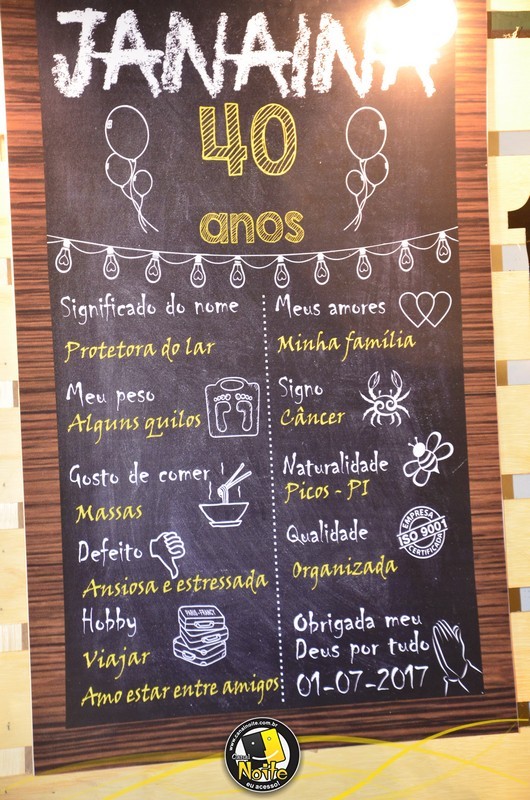 JANAINA
40
anos
Significado do nome
Protetora do lar
Meu peso
Alguns quilos
Gosto de comer
Massas
Defeito
Ansiosa e estressada
Hobby
PARIS-FRANCY
Viajar
Amo estar entre amigos
Meus amores
Minha família
Signo
Câncer
Naturalidade
Picos - PI
Qualidade
EMPRESA
ISO 9001
CERTIFICADA
Organizada
Obrigada meu
Deus por tudo
01-07-2017
www.canalnoite.com.br
Canal
Noite
eu acesso!